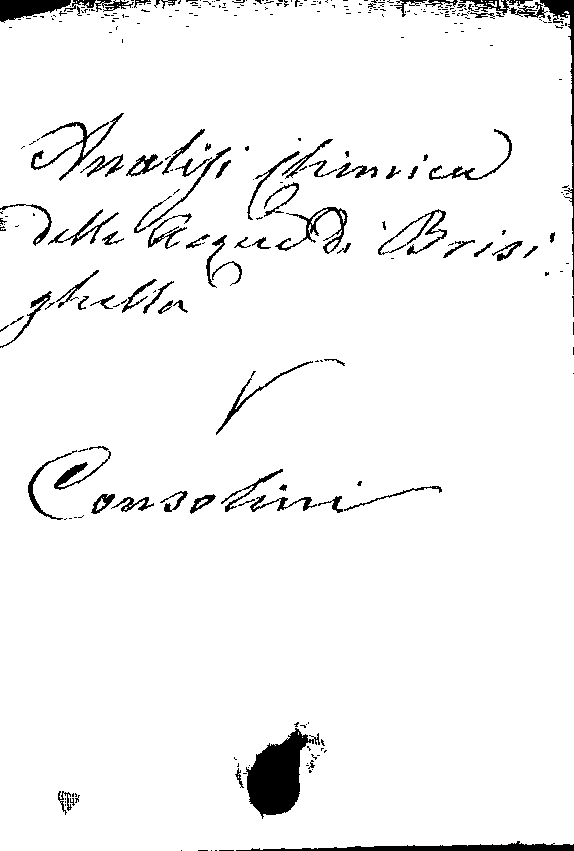 Analisi Chimica
delle Acque di Brisi
ghella
V
Consolini